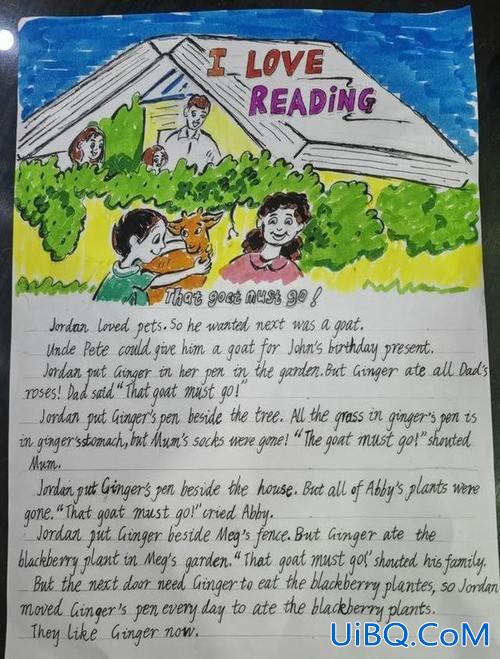 I LOVE
READING
That goat must go!
Jordan loved pets. So he wanted next was a goat.
Uncle Pete could give him a goat for John's birthday present.
Jordan put Ginger in her pen in the garden. But Ginger ate all Dad's
roses! Dad said "That goat must go!"
Jordan put Ginger's pen beside the tree. All the grass in ginger's pen is
in ginger's stomach, but Mum's socks were gone! "The goat must go!" shouted
Mum.
Jordan put Ginger's pen beside the house. But all of Abby's plants were
gone. "That goat must go!" cried Abby.
Jordan put Ginger beside Meg's fence. But Ginger ate the
blackberry plant in Meg's garden. "That goat must go!" shouted his family.
But the next door need Ginger to eat the blackberry plantes, so Jordan
moved Ginger's pen every day to ate the blackberry plants.
They like Ginger now.
UiBQ.CoM